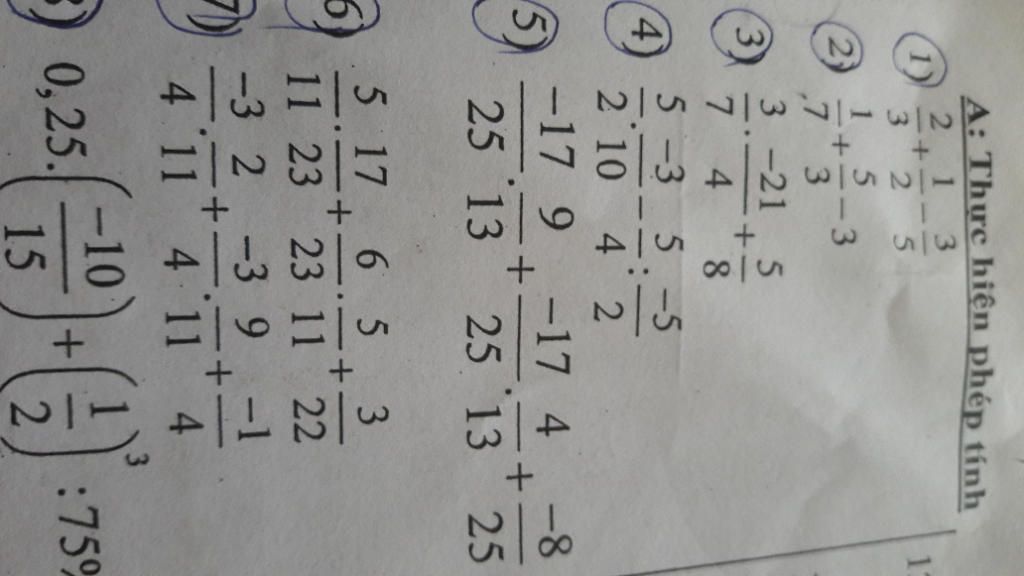 A: Thực hiện phép tính
1) 2/3 + 1/2 - 3/5
2) 1/7 + 5/3 - 3
3) 3/7 . -21/4 + 5/8
4) 5/2 . -3/10 - 5/4 : -5/2
5) -17/25 . 9/13 + -17/25 . 4/13 + -8/25
6) 5/11 . 17/23 + 6/23 . 5/11 + 3/22
7) -3/4 . 2/11 + -3/4 . 9/11 + -1/4
0,25.(-10/15) + (1/2)³ : 75%